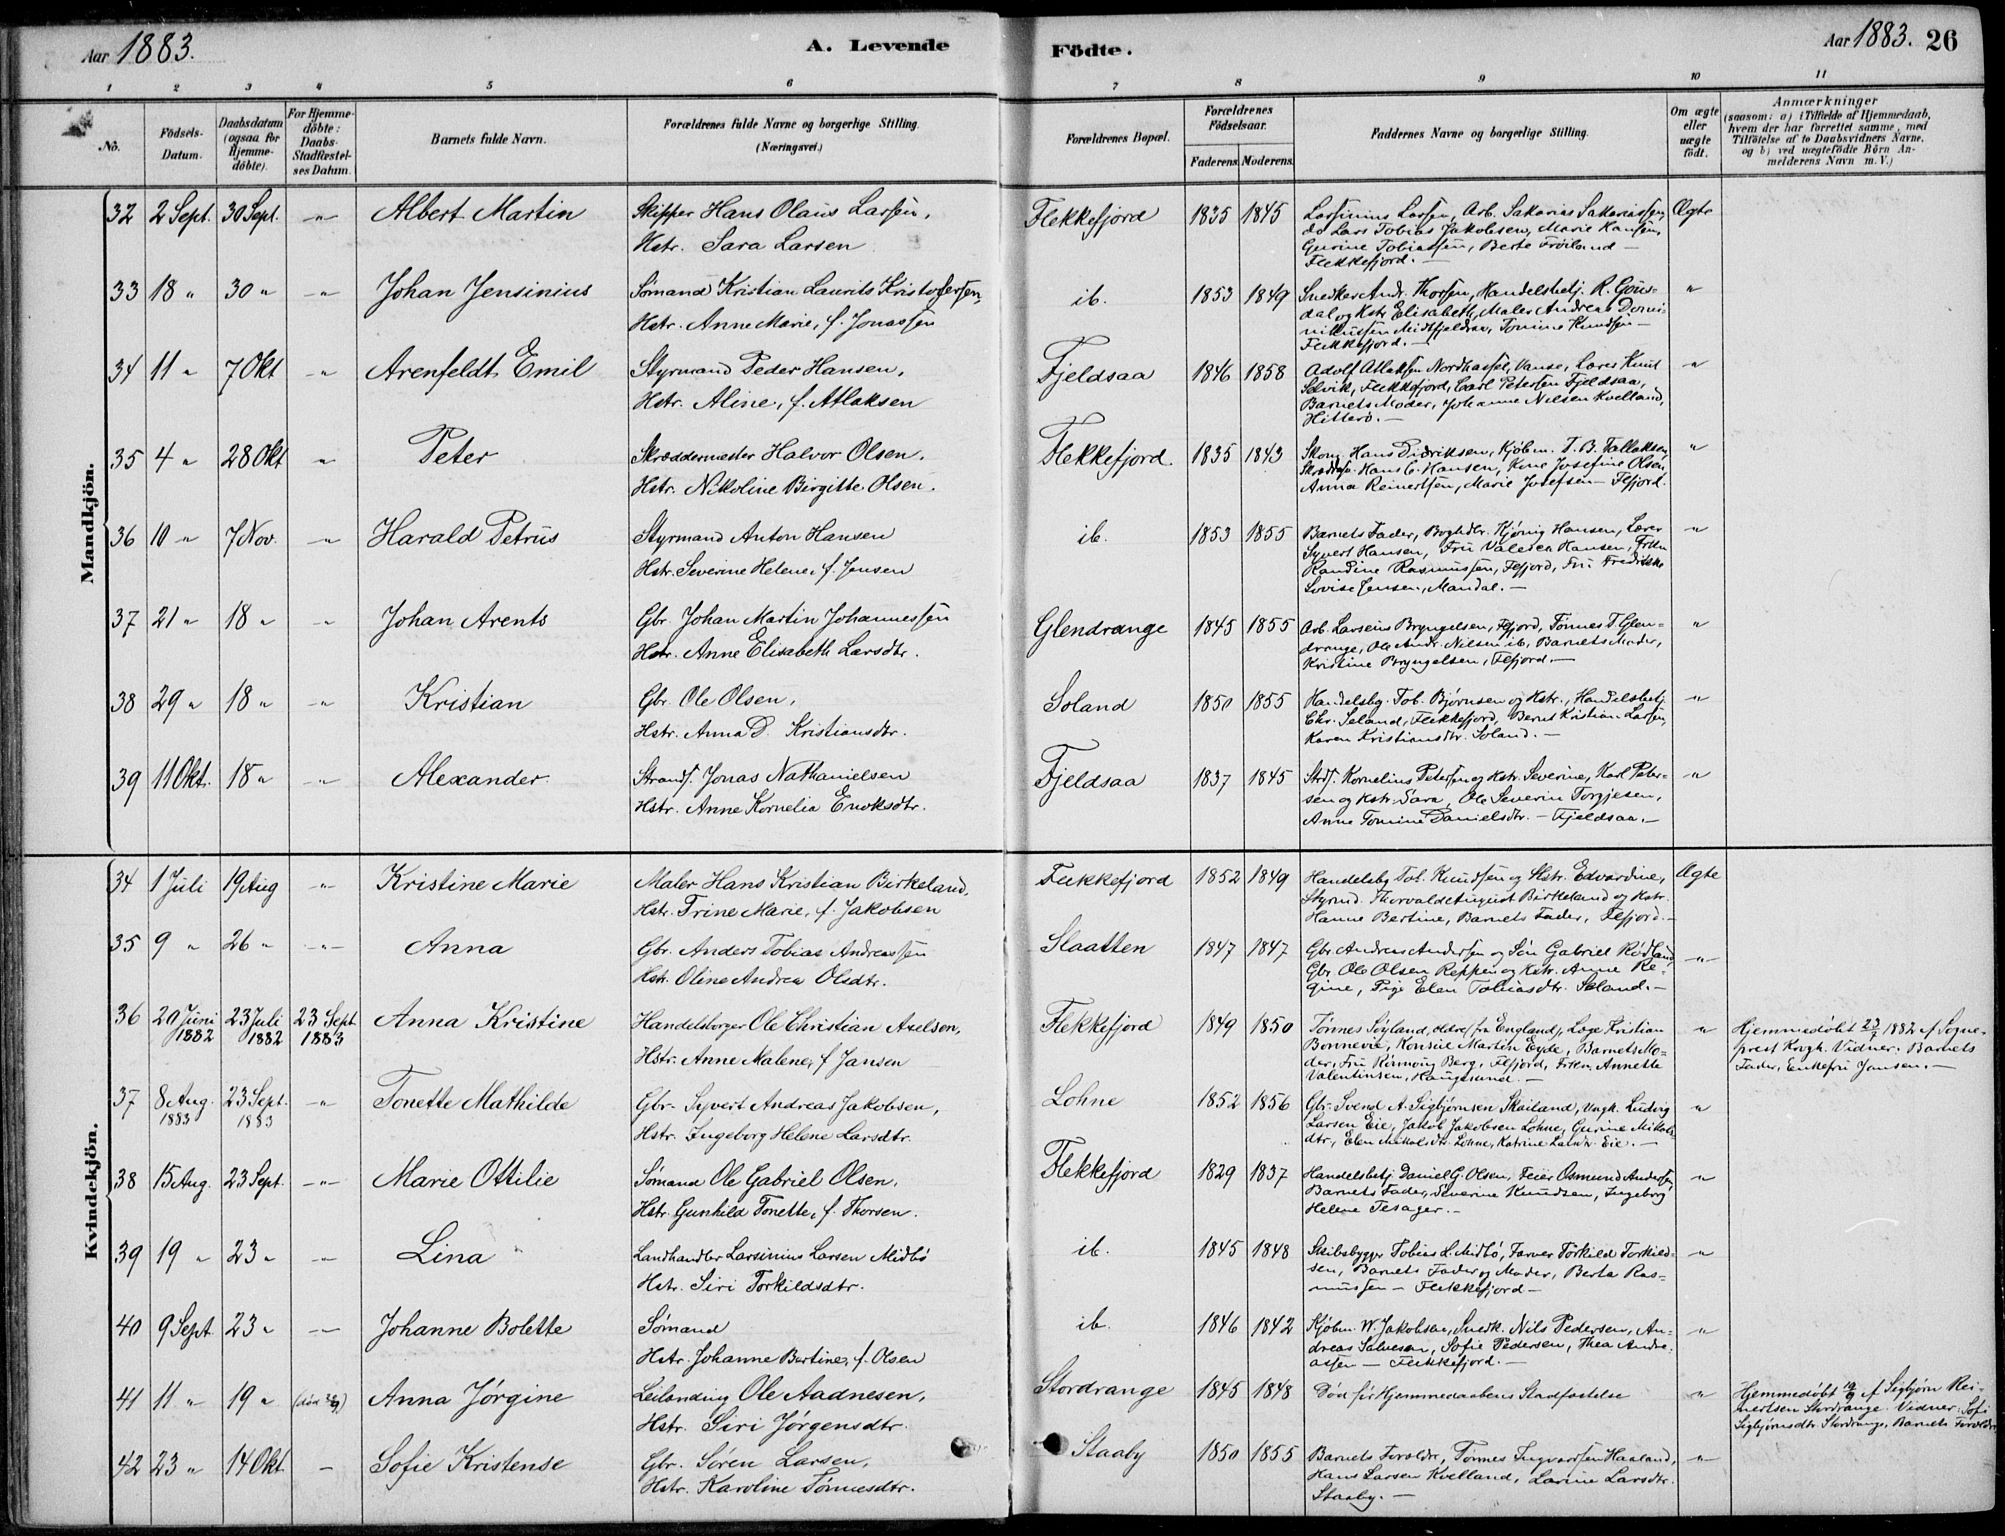 Aar 1883. A. Levende Födte. Aar 1883. 26
1 2 3 4 5 6 7 8 9 10 11
No. Födsels-Datum. Daabsdatum (ogsaa for Hjemme-döbte). For Hjemme-döbte: Daabs-Stadfæstel-ses Datum. Barnets fulde Navn. Forældrenes fulde Navne og borgerlige Stilling. (Næringsvei.) Forældrenes Bopæl. Forældrenes Födselsaar. Faderens. Moderens. Faddernes Navne og borgerlige Stilling. Om ægte eller uægte födt. Anmærkninger (saasom: a) i Tilfælde af Hjemmedaab, hvem der har forrettet samme, med Tilföielse af to Daabsvidners Navne, og b) ved uægtefödte Börn Anmelderens Navn m. V.)
Mandkjön.
32 2 Sept. 30 Sept. " Albert Martin Skipper Hans Olaus Larsen, Flekkefjord 1835 1845 Larsinius Larsen, Arb. Sakarias Sakariassen, Ægte
Hstr. Sara Larsen do Lars Tobias Jakobsen, Marie Hansen,
Gurine Tobiassen, Berte Fröiland —
Flekkefjord. —
33 18 " 30 " " Johan Jensinius Sømand Kristian Laurits Kristofersen, ib. 1853 1849 Snedker Andr. Thorsen, Handelsbetj. R. Gous- "
Hstr. Anne Marie, f. Jonassen dal og Hstr Elisabeth, Maler Andreas Domi-
nikussen Midtfjeldsaa, Tomine Knudsen —
Flekkefjord. —
34 11 " 7 Okt " Arenfeldt Emil Styrmand Peder Hansen, Fjeldsaa 1846 1858 Adolf Atlaksen Nordhassel, Vanse, Lars Knut "
Hstr. Aline, f. Atlaksen Selvik, Flekkefjord, Carl Petersen Fjeldsaa,
Barnets Moder, Johanne Nilsen Kvelland,
Hitterö. —
35 4 " 28 Okt " Peter Skræddermester Halvor Olsen, Flekkefjord. 1835 1843 Skom. Hans Didriksen, Kjöbm. T. B. Tallaksen, "
Hstr. Nikoline Birgitte Olsen. Hans C. Hansen, Kone Josefine Olsen,
Anna Reinertsen, Marie Josefsen — Flfjord.
36 10 " 7 Nov. " Harald Petrus Styrmand Anton Hansen ib. 1853 1855 Barnets Fader, Boghdlr. Kjönig Hansen, Lærer "
Hstr. Severine Helene, f. Jensen Syvert Hansen, Fru Valesca Hansen, Frkn
Randine Rasmussen, Flfjord, Fru Fredrikke
Lovise Jensen, Mandal. —
37 21 " 18 " " Johan Arents Gbr. Johan Martin Johannessen Glendrange 1845 1855 Arb. Larseus Bryngelsen, Flfjord, Tönnes T. Glen- "
Hstr. Anne Elisabeth Larsdtr. drange, Ole Andr. Nilsen ib, Barnets Moder,
Kristine Bryngelsen, Flfjord. —
38 29 " 18 " " Kristian Gbr. Ole Olsen, Soland 1850 1855 Handelsbg. Tob. Bjørnsen og Hstr., Handelsbetj. "
Hstr. Anna D. Kristiansdtr. Chr. Seland, Flekkefjord, Bernt Kristian Larsen,
Karen Kristiansdtr. Soland. —
39 11 Okt. 18 " " Alexander Strands. Jonas Nathanielsen Fjeldsaa 1837 1845 Strds. Kornelius Petersen og Hstr. Severine, Karl Peter- "
Hstr. Anne Kornelia Enoksdtr. sen og Hstr Sara, Ole Severin Torgjesen,
Anne Tomine Danielsdtr. — Fjeldsaa. —
Kvindekjön.
34 1 Juli 19 Aug " Kristine Marie Maler Hans Kristian Birkeland, Flekkefjord 1852 1849 Handelsbg Tob. Knudsen og Hstr. Edvardine, Ægte
Hstr. Trine Marie, f. Jakobsen Styrmd. Thorvald August Birkeland og Hstr.
Hanne Bertine, Barnets Fader, Flfjord. —
35 9 " 26 " " Anna Gbr. Anders Tobias Andreassen Slaatten 1847 1847 Gbr. Andreas Andersen og Sön Gabriel Rödland, "
Hstr. Oline Andrea Olsdtr. Gbr. Ole Olsen Reppen og Hstr. Anne Re-
gine, Pige Elen Tobiasdtr. Seland. —
36 20 Juni 1882 23 Juli 1882 23 Sept 1883 Anna Kristine Handelsborger Ole Christian Axelsen, Flekkefjord 1849 1850 Tönnes Söyland, (fra England), Læge Kristian " Hjemmedøbt 23/7 1882 af Sogne-
Hstr. Anne Malene, f. Jansen Bonnevie, Konsul Martin Eyde, Barnets Mo- prest Krogh. Vidner: Barnets
der, Fru Berg, Flfjord, Frkn. Annette Fader, Enkefru Jansen. —
Valentinsen, Haugesund. —
37 8 Aug. 1883 23 Sept. 1883 " Tonette Mathilde Gbr. Syvert Andreas Jakobsen, Lohne 1852 1856 Gbr. Svend A. Sigbjörnsen Skailand, Ungk. Ludvig "
Hstr. Ingeborg Helene Larsdtr. Larsen Eie, Jakob Jakobsen Lohne, Gurine Mikals-
dtr, Elen Mikalsdtr. Lohne, Katrine Larsdtr. Eie. —
38 15 Aug. 23 Sept. " Marie Ottilie Sømand Ole Gabriel Olsen, Flekkefjord 1829 1837 Handelsbetj. Daniel G. Olsen, Feier Osmund Andersen, "
Hstr. Gunhild Tonette, f. Thorsen. Barnets Fader, Severine Knudsen, Ingeborg
Helene Tesager. —
39 19 " 23 " " Lina Landhandler Larsinius Larsen Midbö ib. 1845 1848 Skibsbygger Tobias L. Midbö, Farver Törkild Torkild- "
Hstr. Siri Torkildsdtr. sen, Barnets Fader og Moder, Berta Ras-
mussen — Flekkefjord —
40 9 Sept 23 " " Johanne Bolette Sømand ib. 1846 1842 Kjöbm. W. Jakobsen, Snedk. Nils Pedersen, An- "
Hstr. Johanne Bertine, f. Olsen dreas Salvesen, Sofie Pedersen, Thea Andre-
assen — Flekkefjord. —
41 11 " 19 " (död) Anna Jörgine Leilending Ole Aadnesen, Stordrange 1845 1848 Död för Hjemmedaabens Stadfæstelse " Hjemmedøbt 19/9 af Sigbjörn Rei-
Hstr. Siri Jörgensdtr. nertsen Stordrange. Vidner: Sofi
Sigbjörnsdtr. Stordrange, Barnets Foreldre
42 23 " 14 Okt — Sofie Kristense Gbr. Sören Larsen, Staaby 1850 1855 Barnets Foreldr, Tönnes Ingvardsen Haaland, "
Hstr. Karoline Tönnesdtr. Hans Larsen Kvelland, Larine Larsdtr.
Staaby. —